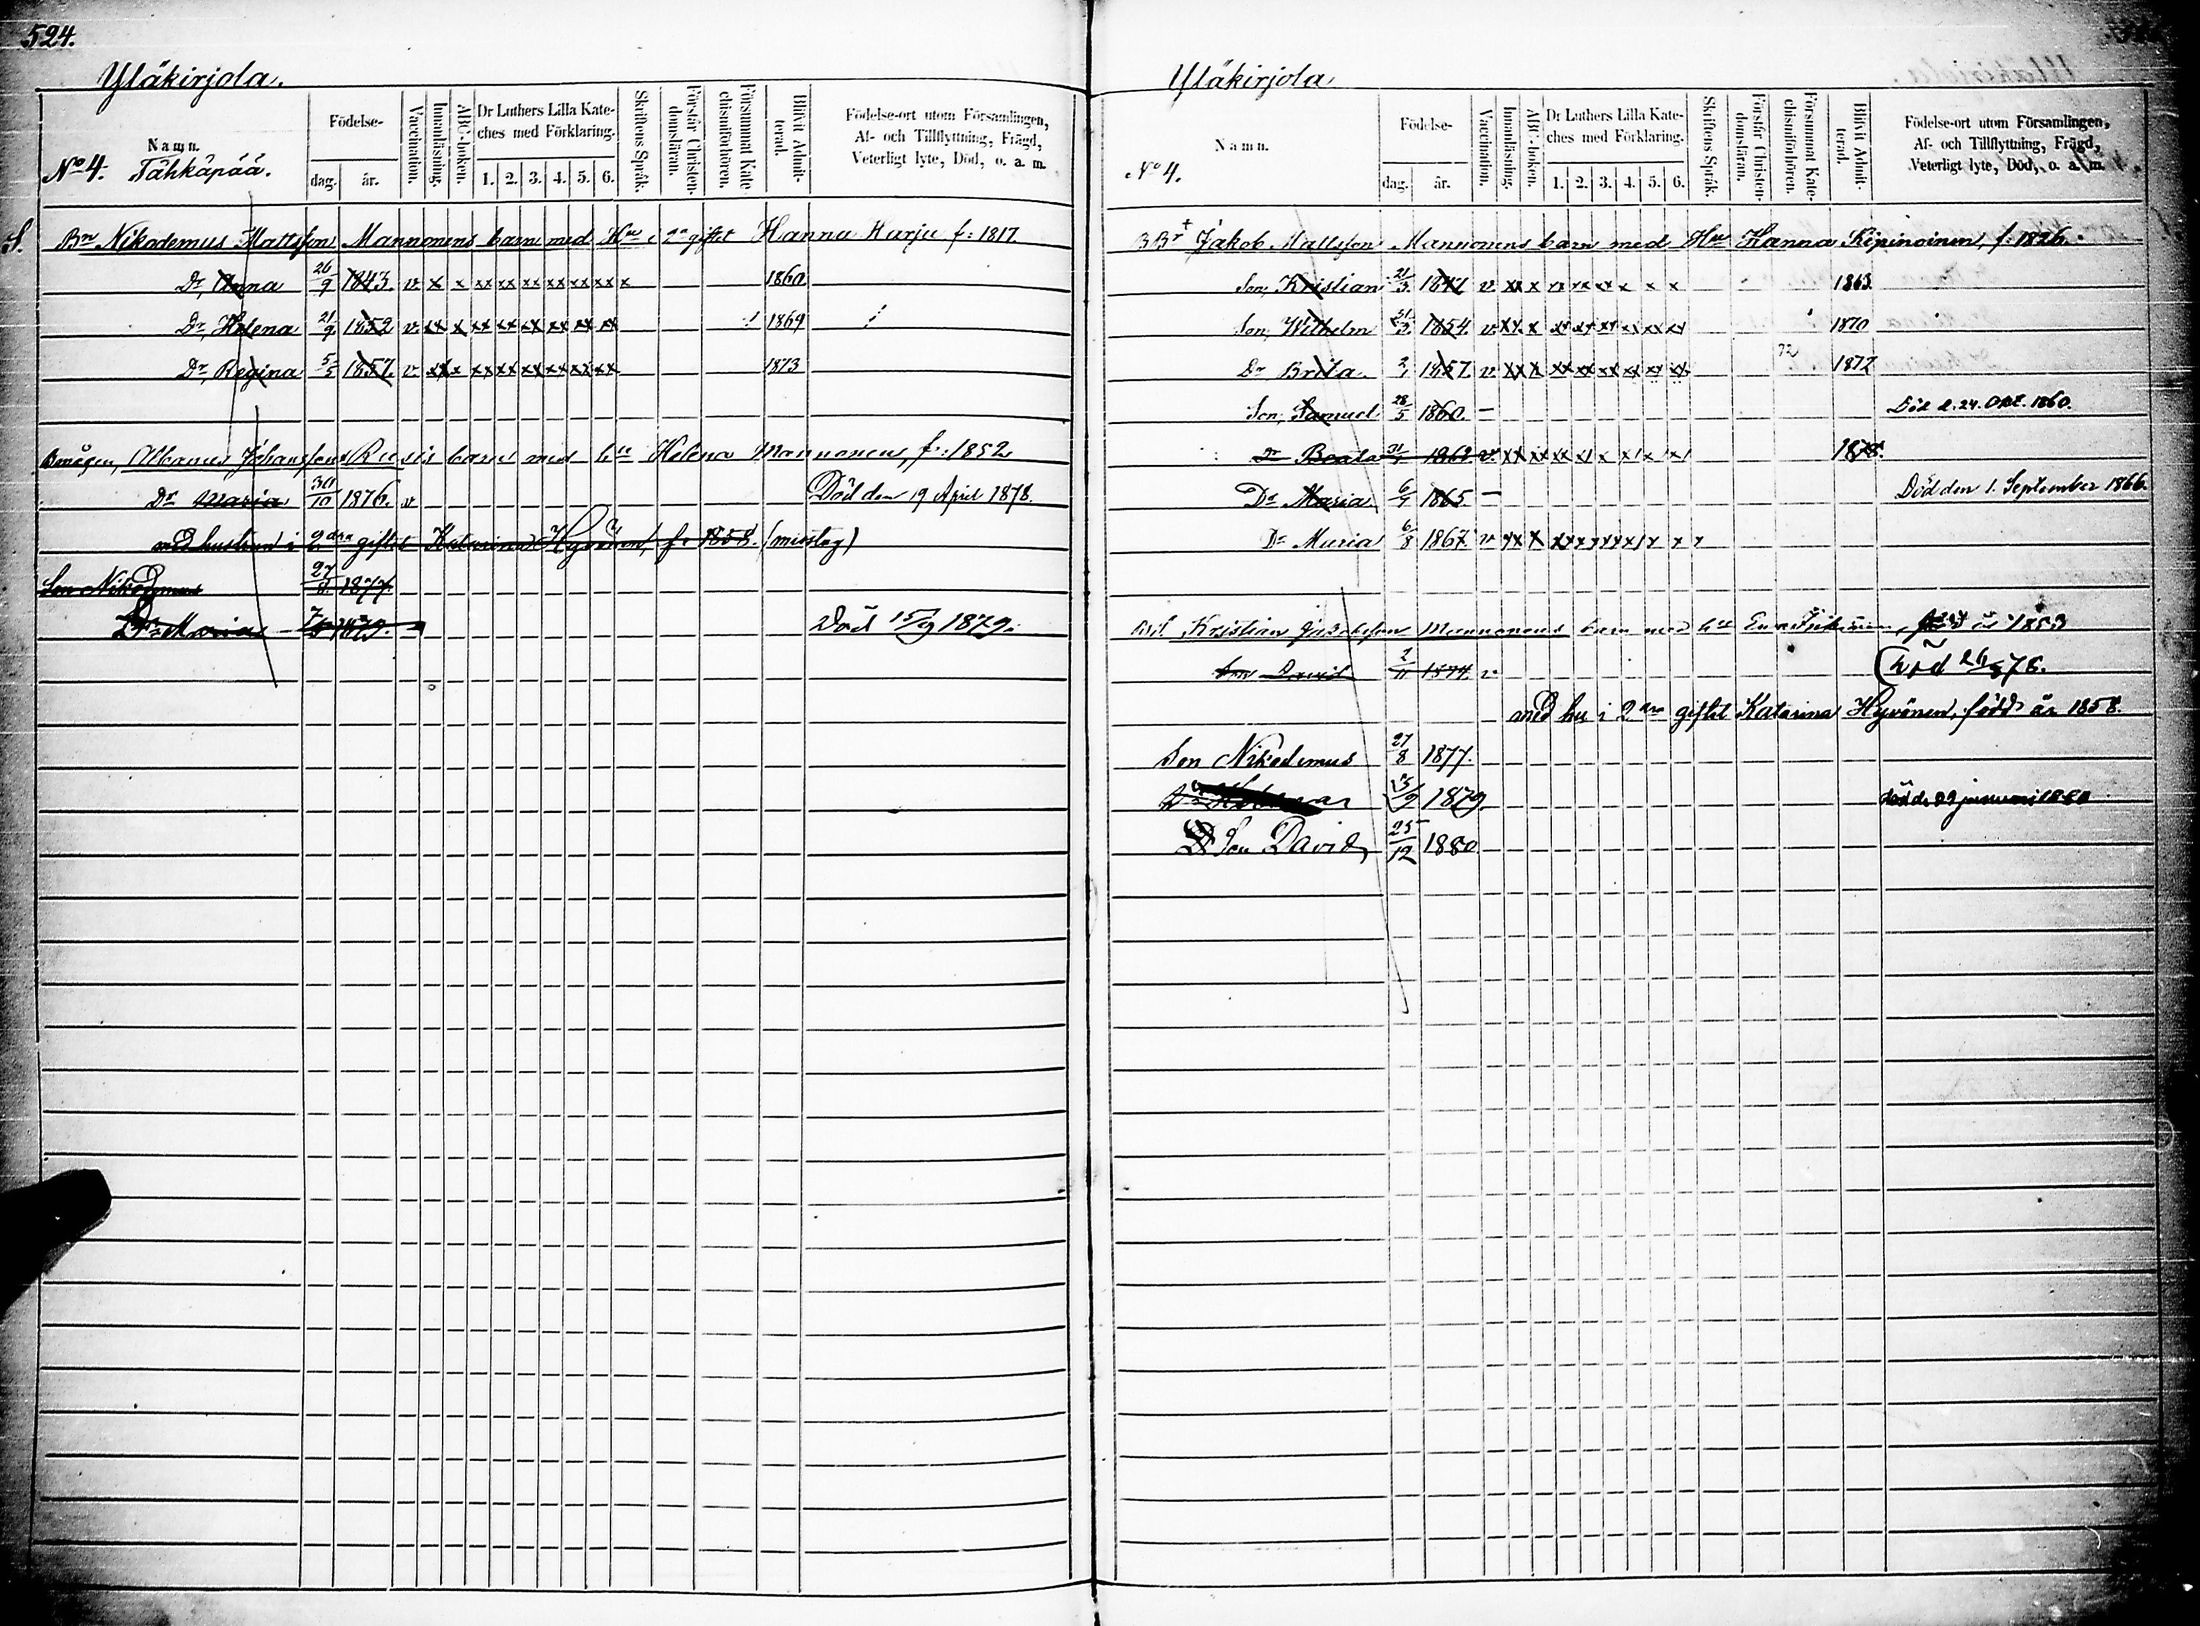 524.
Yläkirjola.
Namn.
No 4. Tähkäpää.
Födelse-
dag.
år.
Vaccination.
Innanläsning.
ABC-boken.
Dr Luthers Lilla Kate-
ches med Förklaring.
1. 2. 3. 4. 5. 6.
Skriftens Språk.
Förstår Christen-
domsläran.
Försummat Kate-
chismiförhören.
Blivit Admit-
terad.
Födelse-ort utom Församlingen,
Af- och Tillflyttning, Frägd,
Veterligt lyte, Död, o. a. m.
Bn Nikodemus Mattsson Mannonens barn med Hu i 2a giftet Hanna Harju f: 1817.
Dr, Anna 26/9 1843. v x x xx xx xx xx xx xx x 1860
Dr, Helena 21/9 1852 v xx x xx xx xx xx xx xx 1869
Dr, Regina 5/5 1857. v xx x xx xx xx xx xx xx 1873
Bmågen, Albanus Johansson Rusis barn med hu Helena Mannonen, f: 1852
Dr Maria 30/10 1876. v Död den 19 April 1878.
med hustrun i 2dra giftet Katarina Hyvönen, f. 1858. (misstag)
Son Nikodemus 27/8 1877.
Dr Maria 1879. Död 15/9 1879.
Yläkirjola
Namn.
No 4.
Födelse-
dag.
år.
Vaccination.
Innanläsning.
ABC-boken.
Dr Luthers Lilla Kate-
ches med Förklaring.
1. 2. 3. 4. 5. 6.
Skriftens Språk.
Förstår Christen-
domsläran.
Försummat Kate-
chismiförhören.
Blivit Admit-
terad.
Födelse-ort utom Församlingen,
Af- och Tillflyttning, Frägd,
Veterligt lyte, Död, o. a. m.
BBr Jakob Mattsson Mannonens barn med Hu Hanna Kipinoinen, f: 1826.
Son, Kristian 21/3 1847 v xx x xx xx xx x x x 1863
Son, Wilhelm 31/3 1854. v xx x xx xx xx xx xx xx 1870
Dr Brita 2/1 1857. v xx x xx xx xx xx xx xx 72 1872
Son, Samuel 28/5 1860. — Död d. 24. Okt. 1860.
Dr Beata 1862 v 1878.
Dr Maria 6/7 1865 — Död den 1. September 1866.
Dr Maria 6/8 1867. v
Kristian Jakobsson Mannonens barn med hu 1853
Son David 2/11 1874. v Död 26/3 78.
med hu i 2dra giftet Katarina Hyvönen, född år 1858.
Son Nikodemus 27/8 1877.
1879. död d. 29 januari 1880
Son David 25/12 1880